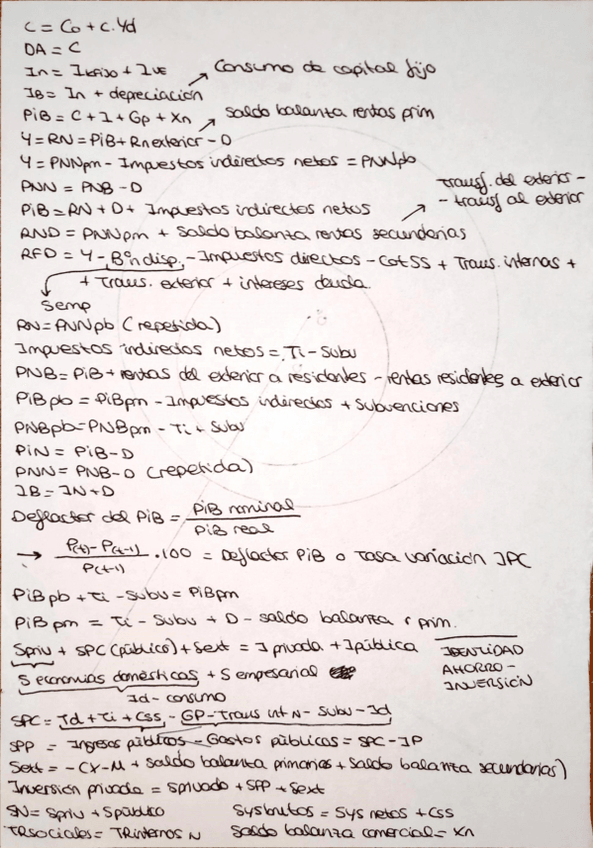 C = Co + c. Yd
DA = C
In = Ikfijo + IVE
Consumo de capital fijo
IB = In + depreciación
PiB = C + I + Gp + Xn
saldo balanza rentas prim
Y = RN = PiB + Rnexterior - D
Y = PNNpm - Impuestos indirectos netos = PNNpb
PNN = PNB - D
transf. del exterior -
- transf al exterior
PiB = RN + D + Impuestos indirectos netos
RND = PNNpm + Saldo balanza rentas secundarias
RFD = Y - Bº n disp. - Impuestos directos - CotSS + Trans. internas +
+ Trans. exterior + intereses deuda.
Semp
RN = PNNpb (repetida)
Impuestos indirectos netos = Ti - Subv
PNB = PiB + rentas del exterior a residentes - rentas residentes a exterior
PiBpb = PiBpm - Impuestos indirectos + Subvenciones
PNBpb = PNBpm - Ti + Subv
PiN = PiB - D
PNN = PNB - D (repetida)
IB = IN + D
Deflactor del PiB = PiB nominal / PiB real
→ P(t) - P(t-1) / P(t-1) . 100 = Deflactor PiB o Tasa variación IPC
PiBpb + Ti - Subv = PiBpm
PiBpm = Ti - Subv + D - saldo balanza r prim.
Spriv + SPC (público) + Sext = I privada + I pública
IDENTIDAD
AHORRO -
INVERSIÓN
S economías domésticas + S empresarial
Id - consumo
SPC = Td + Ti + Css - GP - Trans int N - Subv - Id
SPP = Ingresos públicos - Gastos públicos = SPC - IP
Sext = - (X - M + Saldo balanza primarias + Saldo balanza secundarias)
Inversión privada = Sprivado + SPP + Sext
SN = Spriv + Spúblico
Sysbrutos = Sys netos + CSS
TRsociales = TRinternos N
Saldo balanza comercial = Xn